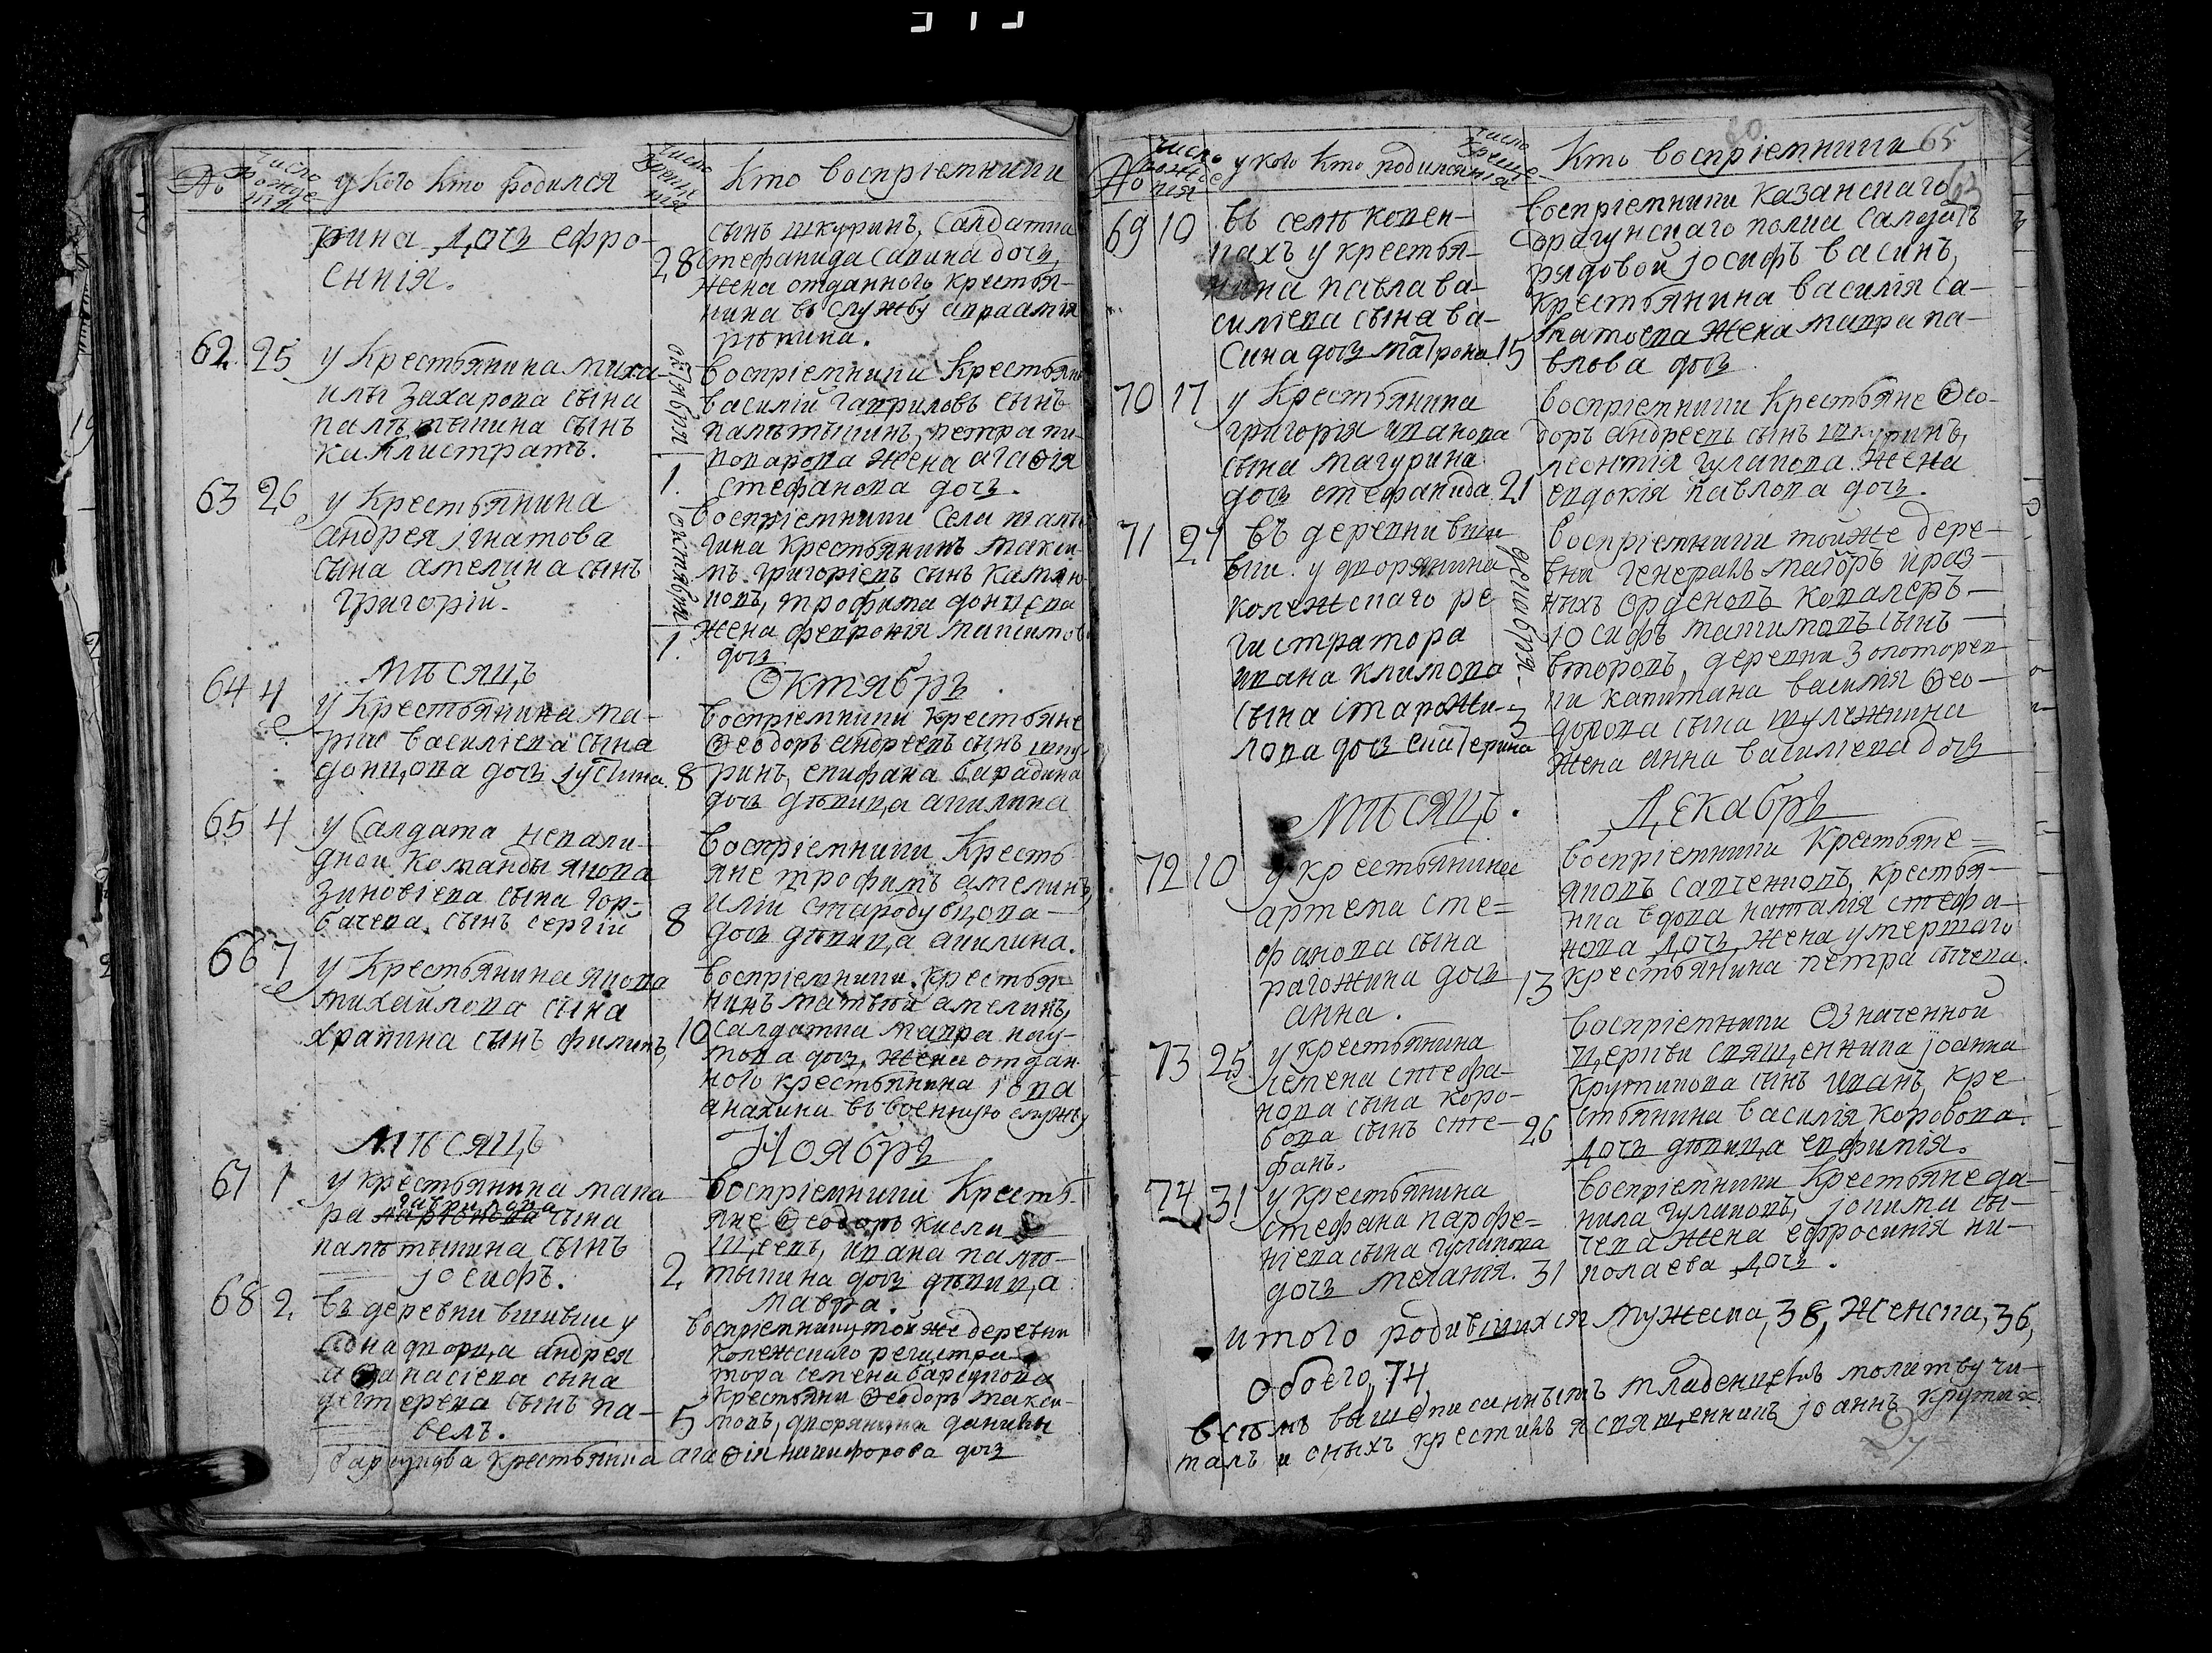 №
число рождения
у кого кто родился
число крещения
Кто воспрiемники
рина дочь ефро-
синiя.
28
сынъ шкуринъ, салдатка
стефанида савина дочь,
жена отданного крестья-
нина въ службу авраамiя
рѣпина.
62. 25 у Крестьянина миха-
илы захарова сына
калистратъ.
октября
1.
Воспрiемники Крестьяне
василiй гавриловъ сынъ
жена агафiя
стефанова дочь.
63 26 у Крестьянина
андрея iгнатова
сына амелина сынъ
григорiй.
октября
1.
Воспрiемники села
крестьянинъ макси-
мъ григорiевъ сынъ
трофима донцова
жена феврониiя максимова
дочь
мѣсяцъ Октябрь
64 4 у Крестьянина ма-
рка василiева сына
донцова дочь iустина. 8
воспрiемники крестьяне
Ѳеодоръ андреевъ сынъ шку-
ринъ, епифана барадина
дочь дѣвица акилина
65 4 у Салдата невали-
дной команды якова
зиновiева сына гор-
бачева, сынъ сергiй 8
Воспрiемники Кресть-
яне трофимъ амелинъ,
илiи стародубцова
дочь дѣвица акилина.
66 7 у Крестьянина якова
михайлова сына
храпина сынъ филипъ, 10
воспрiемники крестья-
нинъ матвей амелинъ,
салдатка мавра нау-
мова дочь, жена отдан
ного крестьянина iова
анахина въ военную службу
Мѣсяцъ Ноябрь
67 1 у крестьянина мака
ра гаврилова сына
сынъ
iосифъ. 2
воспрiемники Кресть-
яне Ѳеодоръ кисли
щевъ, ивана
дочь дѣвица
мавра.
68 2. въ деревни вшивки у
однодворца андрея
афанасiева сына
дегтерева сынъ па-
велъ. 5
воспрiемники той же деревни
колежскаго регистра
тора семена барсукова
крестьянин Ѳеодоръ макси-
мовъ, дворянина данилы
барсукова крестьянина агафiя никифорова дочь
65
63
№
число рождения
у кого кто родился
число крещения
Кто воспрiемники
69 10 въ селѣ копен-
кахъ у крестья-
нина павла ва-
силiева сына ва-
сина дочь матрона. 15
воспрiемники казанскаго
драгунскаго полка салдатъ
рядовой iосифъ васинъ,
крестьянина василiя са-
жена мавра па-
влова дочь
70 17 у Крестьянина
григорiя иванова
сына магурина
дочь стефанида 21
воспрiемники крестьяне Ѳео-
доръ андреевъ сынъ шкуринъ,
леонтiя гулакова жена
евдокiя павлова дочь.
71 27 въ деревни вши
вки у дворянина
колежскаго ре
гистратора
ивана климова
сына старожи-
лова дочь екатерина
декабря
3
воспрiемники тойже дере-
вни генералъ маiоръ и раз-
ныхъ орденовъ кавалеръ
iосифъ максимовъ сынъ
второвъ, деревни золоторев
ки капитана василiя Ѳео-
дорова сына
жена анна василiева дочь
Мѣсяцъ. Декабрь
72 10 у крестьянина
артема сте=
фанова сына
рагожина дочь 13
анна.
воспрiемники крестьяне=
яковъ савченковъ, крестья-
нка вдова наталiя стефа
нова дочь, жена умершаго
крестьянина петра сычева.
73 25 у крестьянина
семена стефа-
нова сына коро-
бова сынъ сте- 26
фанъ.
воспрiемники означенной
церкви священника iоанна
крутикова сынъ иванъ, кре
стьянина василiя коробова
дочь дѣвица евфимiя.
74 31 у крестьянина
стефана парфе=
нiева сына гулакова
дочь меланiя. 31
воспрiемники крестьяне да-
нила гулаковъ, iокима сы-
чева жена ефросинiя ни-
колаева дочь.
итого родившихся мужеска, 38, женска, 36,
обоего, 74,
всѣмъ вышеписаннымъ младенцевъ молитву чи-
талъ и оныхъ крестилъ я священникъ iоаннъ крутик